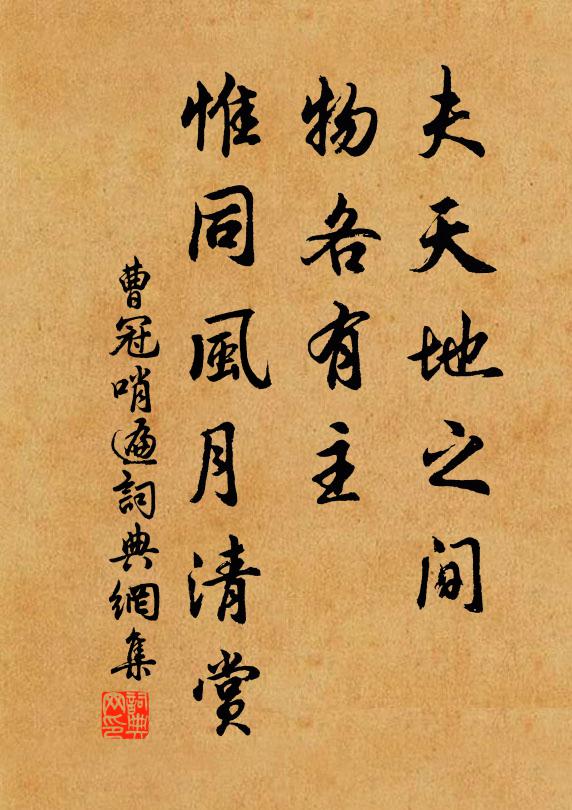 夫天地之间
物各有主
惟同風月清賞
曹冠哨遍詞典網集
詞典
网印